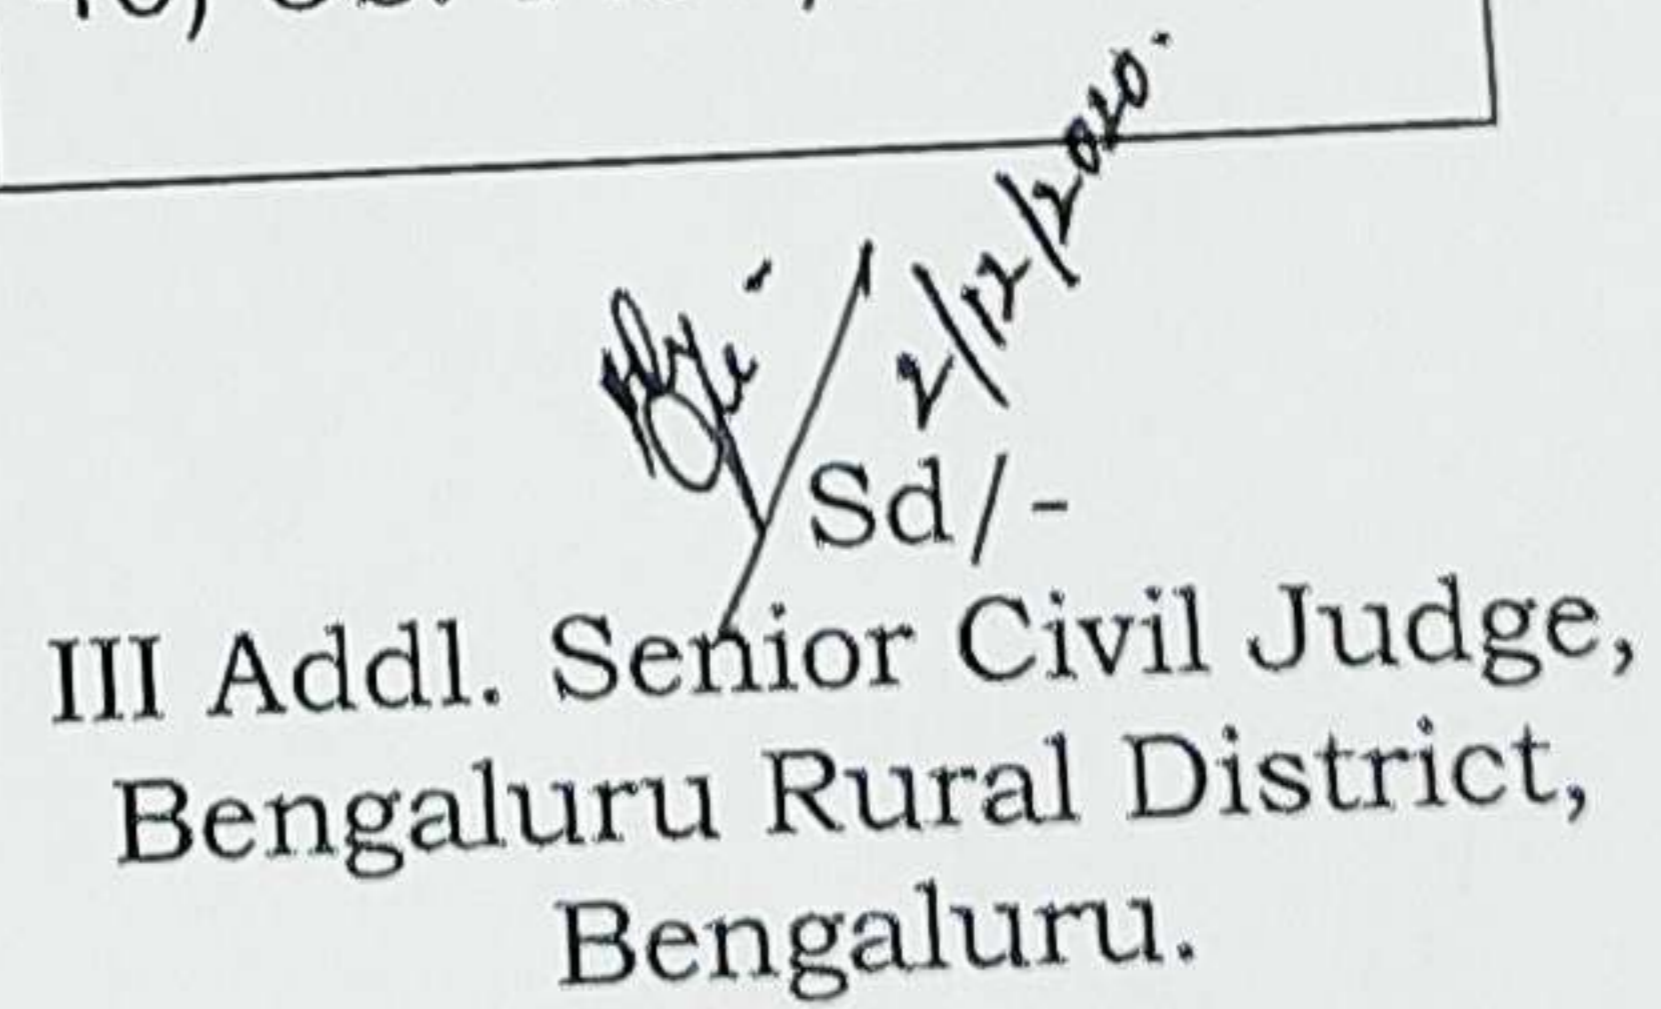 2/12/2020.
Sd/-
III Addl. Senior Civil Judge,
Bengaluru Rural District,
Bengaluru.